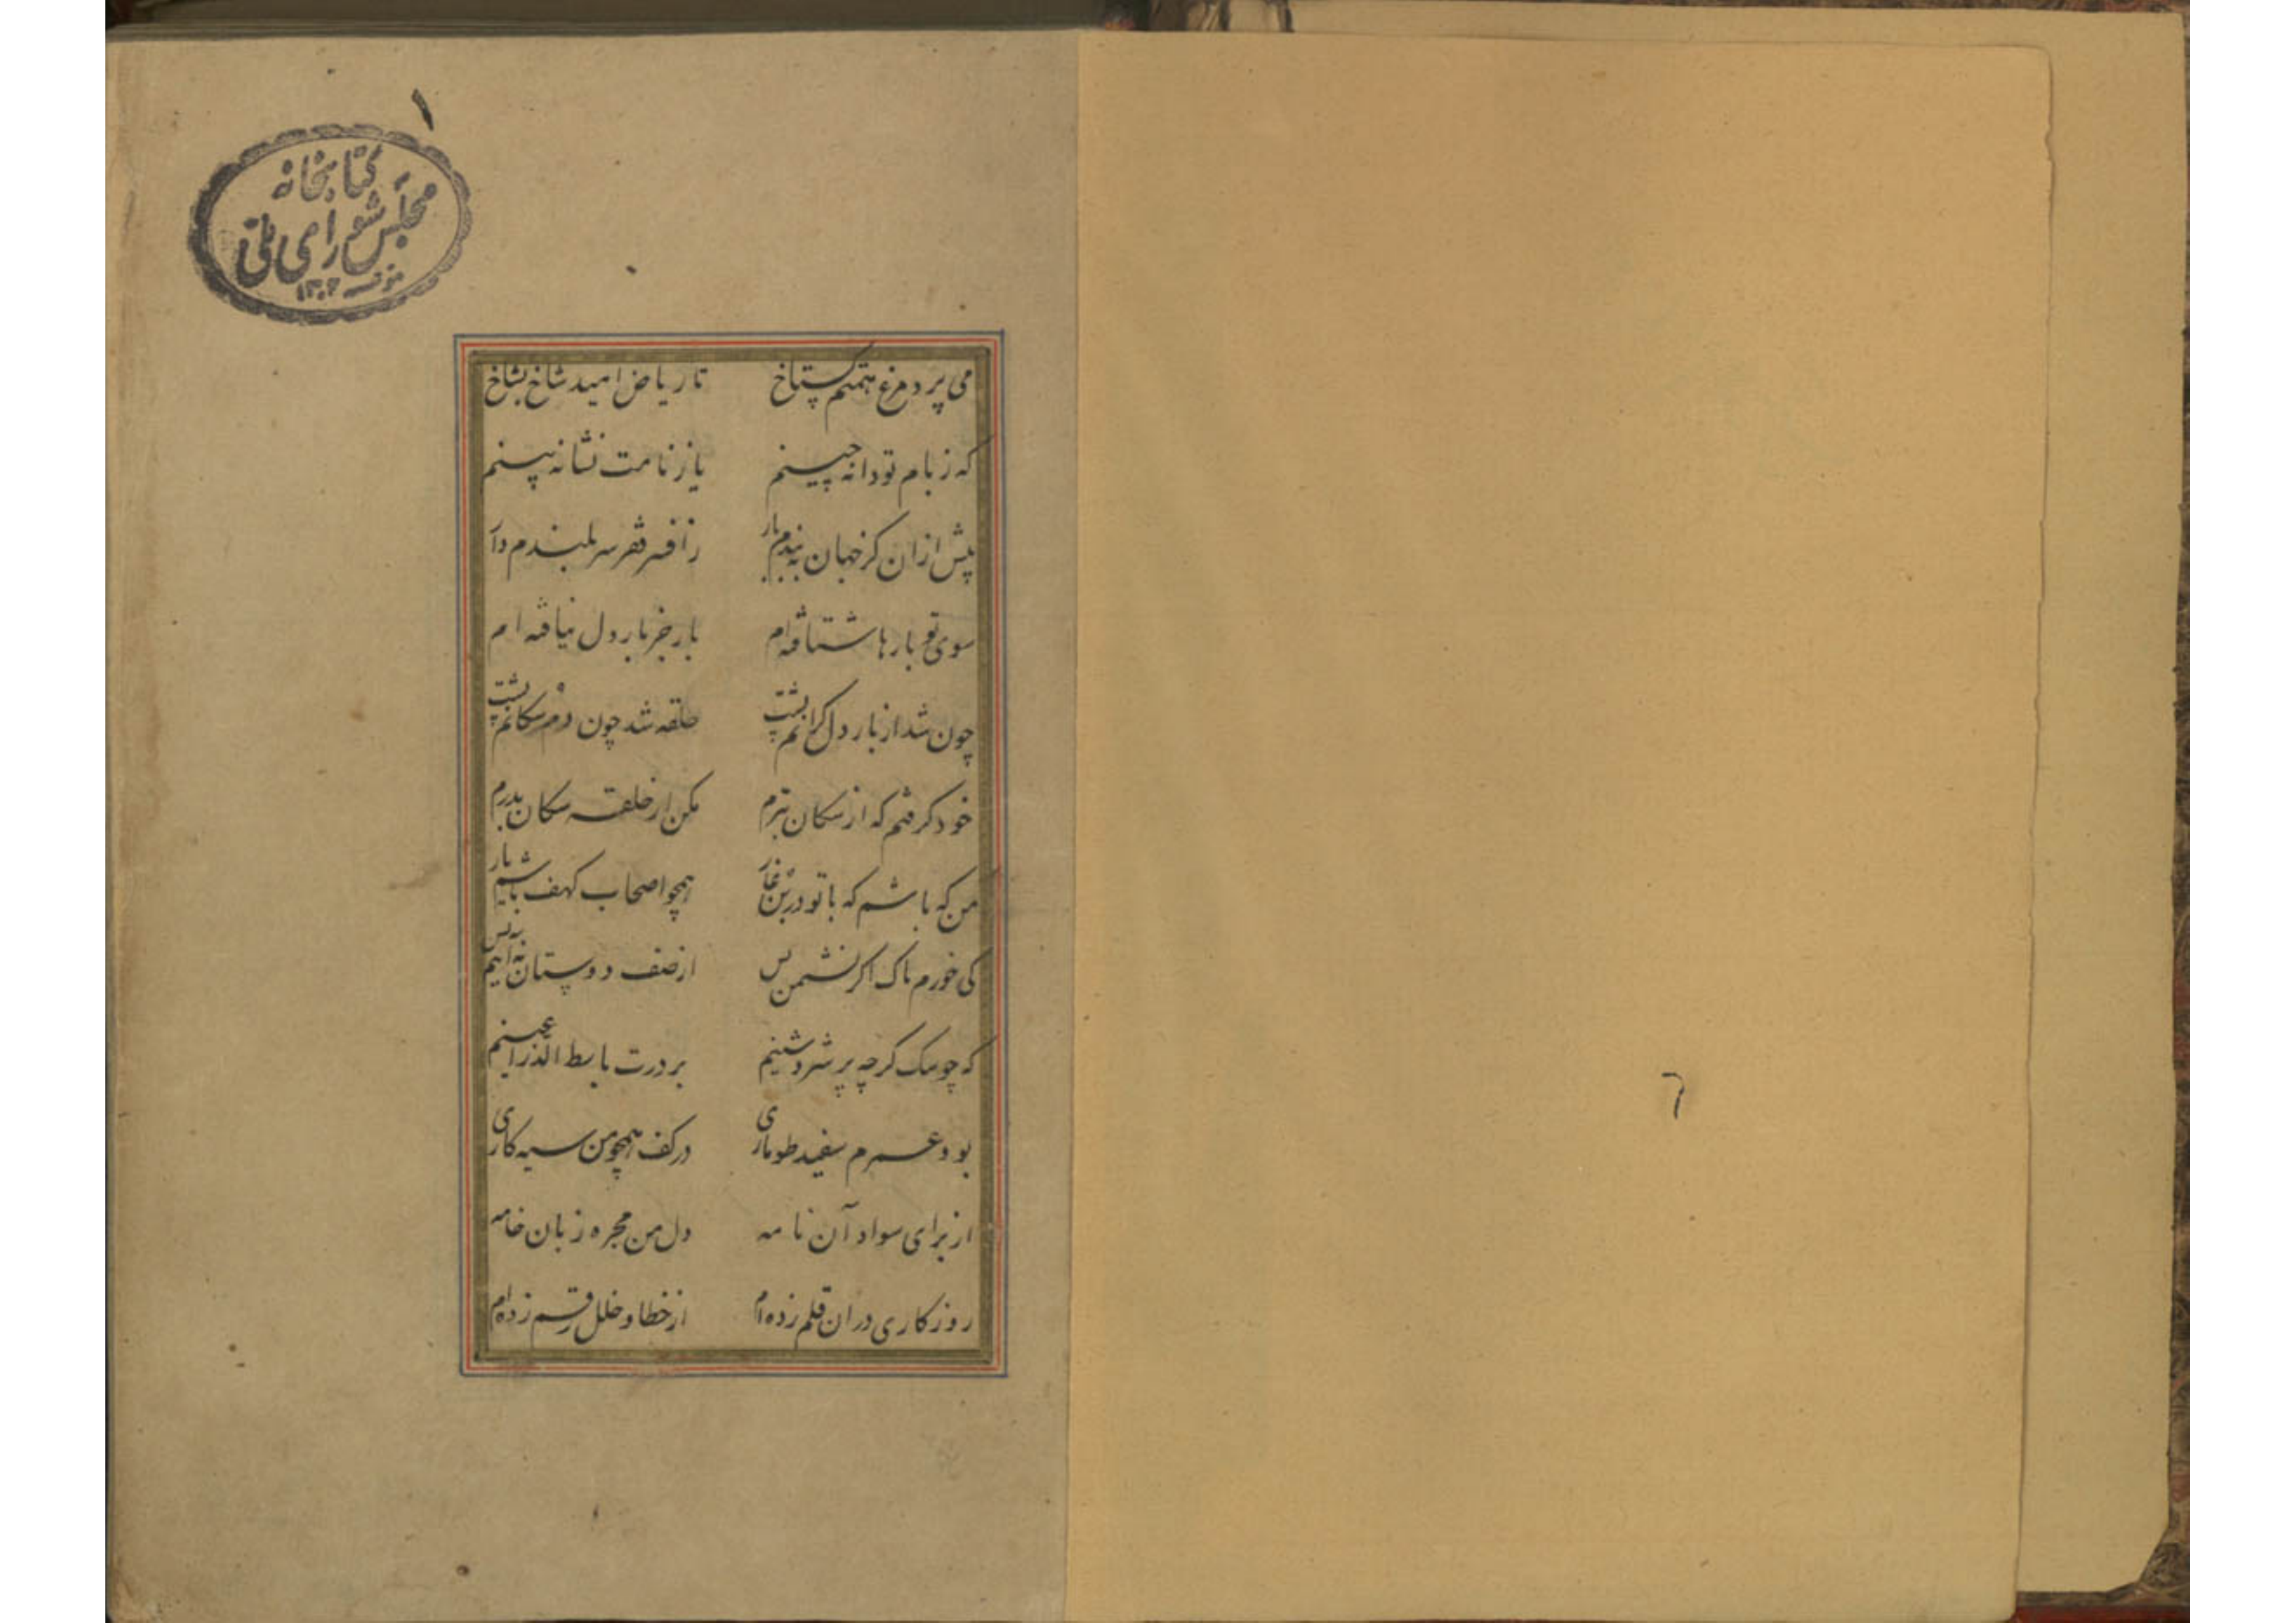 ۱
کتابخانه
مجلس شورای ملی
۱۳۰۲
می پرد مرغ همتم کستاخ تا ریاض امید شاخ بشاخ
که ز بام تو دانه چینم یا ز نامت نشانه بینم
پیش ازان کز جهان به بندم بار ز افسر فقر سر بلندم دار
سوی تو بارها شتافته ام بار جز بار دل نیافته ام
چون شد از بار دل کرانم پشت حلقه شد چون دم سکانم پشت
خود کرفتم که از سکان بترم مکن از حلقه سکان بدرم
من که باشم که با تو در بن غار همچو اصحاب کهف باشم یار
کی خورم باک اگر نشمرد کس از صف دوستان
که چو سک کرچه پر شر و شینم بر درت باسط الذراعینم
بود عمرم سفید طوماری در کف همچو من سیه کاری
از برای سواد آن نامه دل من محبره زبان خامه
روزکاری دران قلم زده ام از خطا و خلل رقم زده ام
۶